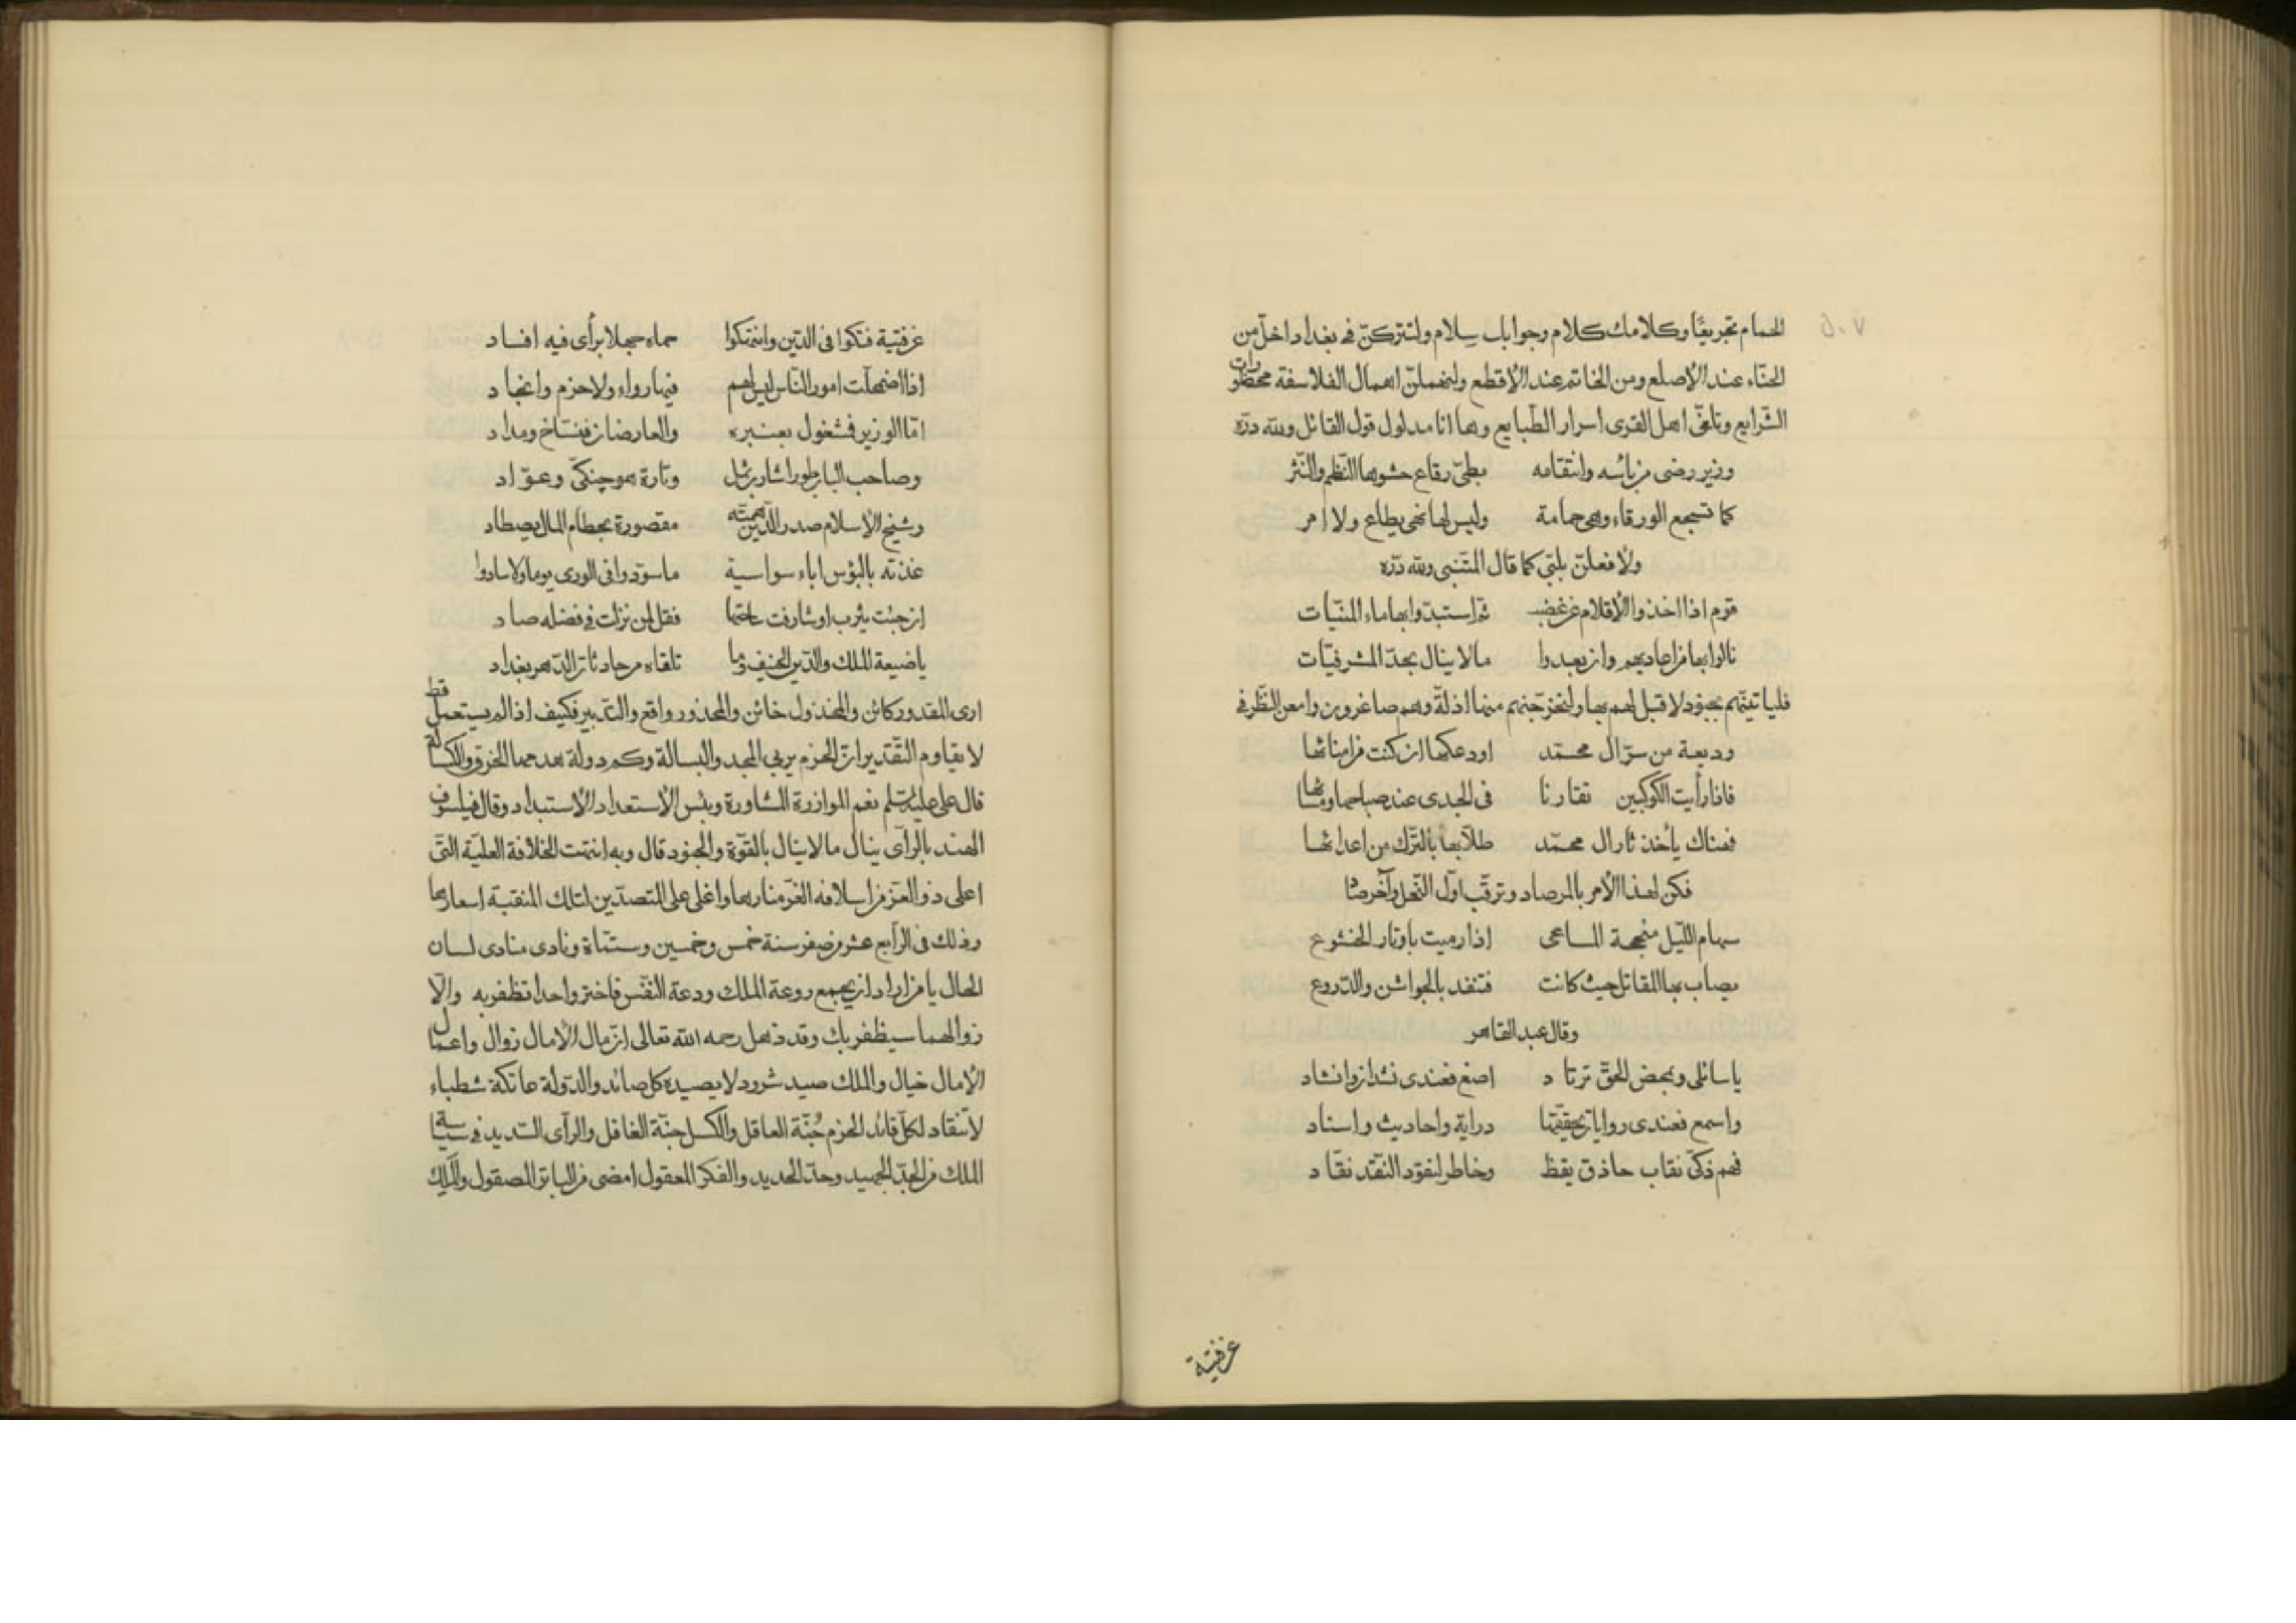 ٥٠٧
الحمام تجريعًا وكلامك كلام وجوابك سلام ولتتركنّ فى بغداد اخلّ من
الحنّاء عند الأصلع ومن الخاتم عند الأقطع ولنهملنّ اهمال الفلاسفة محظورات
الشّرايع وتلقى اهل القرى اسرار الطّبايع وها انا مدلول قول القائل ولله درّه
وزير رضى من بأسه وانتقامه بطىّ رقاع حشوها النّظم والنّثر
كما تسجع الورقاء وهى حمامة وليس لها نهى يطاع ولا امر
ولأفعلنّ بلبّى كما قال المتنبى ولله درّه
قوم اذا اخذوا الأقلام عن غضب ثمّ استبدّوا بها ماء المنيّات
نالوا بها من اعاديهم وان بعدوا مالا ينال بحدّ المشرفيّات
فلياتينّهم بجنود لا قبل لهم بها ولنخرجنهم منها اذلة وهم صاغرون وامعن النّظر فى
وديعة من سرّ ال محمّد اودعكها ان كنت من امنائها
فاذا رأيت الكوكبين تقارنا فى الجدى عند صباحها ومسائها
فهناك يأخذ ثار ال محمّد طلّابها بالترك من اعدائها
فكن لهذا الأمر بالمرصاد وترقب اوّل النّحل وآخر صاد
سهام اللّيل منجحة المساعى اذا رميت باوتار الخشوع
يصاب بها المقاتل حيث كانت فتنفد بالجواشن والدّروع
وقال عبد القاهر
يا سائلى وبمحض الحقّ ترتاد اصغ فعندى نشدان وانشاد
واسمع فعندى روايات تحققّتها دراية واحاديث واسناد
فهم ذكىّ نقاب حاذق يقظ وخاطر لنقود النقد نقّاد
عن فتية
عن فتية فتكوا فى الدّين وانتهكوا حماه جهلا برأى فيه افساد
اذا اضمحلّت امور النّاس ليس لهم فيها رواء ولا حزم وانجاد
امّا الوزير فمشغول بعنبره والعارضان فنسّاخ ومداد
وصاحب الباب طورا شارب ثمل وتارة هو جنكىّ وعوّاد
وشيخ الأسلام صدر الدّين همّته مقصورة بحطام المال يصطاد
غذته بالبؤس اباء سواسية ما سوّدوا فى الورى يوما ولا سادوا
ان جئت يثرب او شارفت ساحتها فقل لمن نزلت فى فضله صاد
يا ضيعة الملك والدّين الحنيف وما تلقاه من حادثات الدّهر بغداد
ارى المقدور كائن والمخذول خائن والمحذور واقع والتّدبير فكيف اذا لم يستعمل قط
لا يقاوم التّقدير انّ الحزم يربى المجد والبسالة وكم دولة هدمها الخرق والكسالة
قال على عليه السّلم نعم الموازرة المشاورة وبئس الأستعداد الأستبداد وقال فيلسوف
الهند بالرأى ينال مالا ينال بالقوّة والجنود قال وبه انتهت الخلافة العليّة التى
اعلى ذو العزّ من اسلافه الغرّ منارها واغلى على المتصدّين لتلك المنقبة اسعارها
وذلك فى الرّابع عشر من صفر سنة خمس وخمسين وستّمأة ونادى منادى لسان
الحال يا من اراد ان يجمع روعة الملك ودعة النّفس فاختر واحدا تظفر به والّا
زوالهما سيظفر بك وقد ذهل رحمه الله تعالى ان مآل الأمال زوال واعمال
الأمال خيال والملك صيد شرود لا يصيده كل صائد والدّولة عاتكة شطباء
لا تنقاد لكلّ قائد الحزم جُنّة العاقل والكسل جنّة الغافل والرأى السّديد فى سياسة
الملك من الجدّ الجميد وحدّ الحديد والفكر المعقول امضى من الباتر المصقول والملك